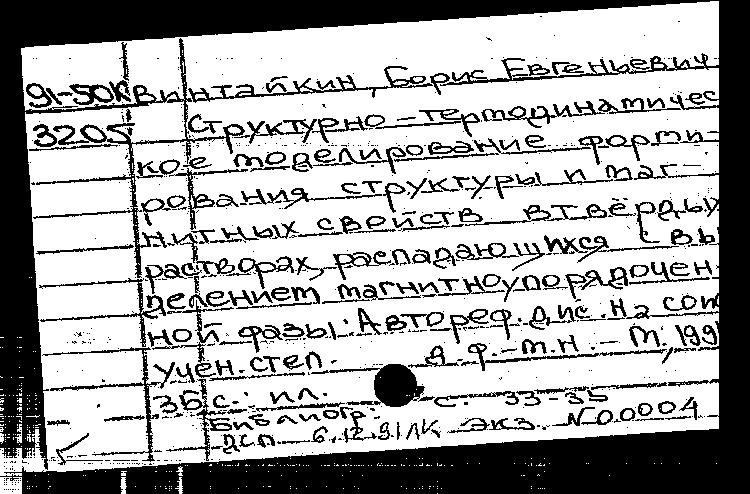 91-50К Винтайкин, Борис Евгеньевич
3205 Структурно-термодинамичес
кое моделирование форми-
рования структуры и маг-
нитных свойств в твёрдых
растворах, распадающихся с вы
делением магнитноупорядочен-
ной фазы: Автореф. дис. на соис
учен. степ. д. ф.-м. н. - М., 199
35 с.: ил.
Библиогр.: с. 33-35
ДСП 6.12.91 ЛК Экз. N00004